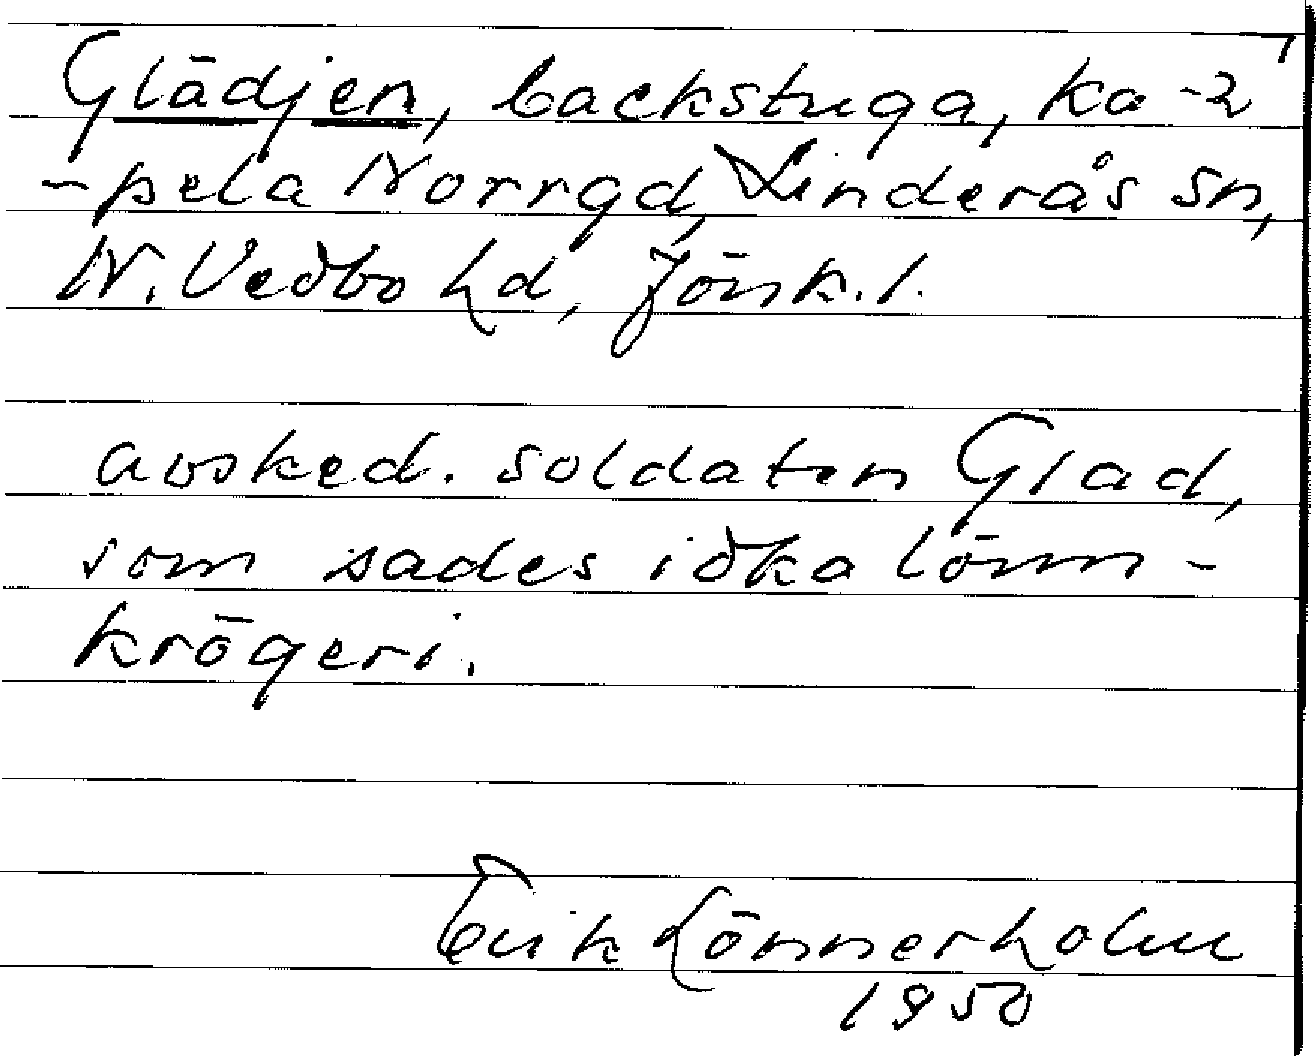 Glädjen, backstuga, Ka-2
-pela Norrgd, Linderås sn,
N. Vedbo hd, Jönk. l.
avsked. soldaten Glad,
som sades idka lönn-
krögeri.
Erik Lönnerholm
1950